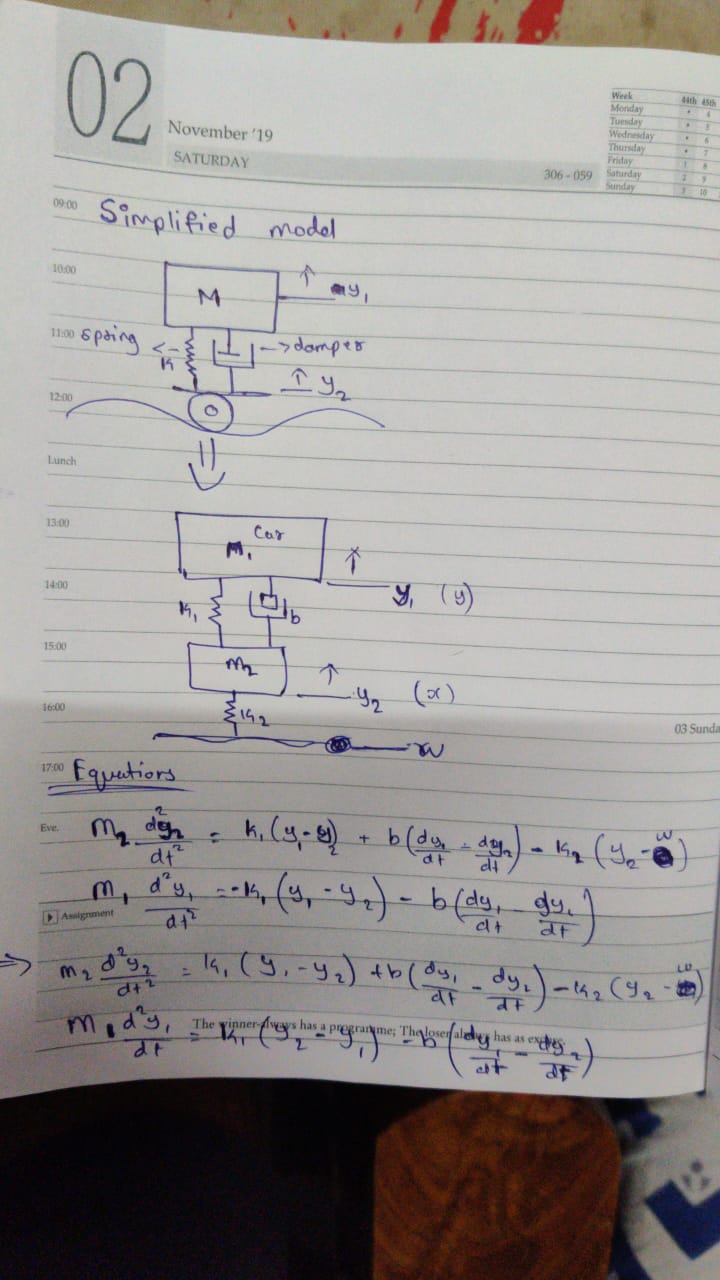 02
November '19
SATURDAY
306 - 059
Week 44th 45th
Monday • 4
Tuesday • 5
Wednesday • 6
Thursday • 7
Friday 1 8
Saturday 2 9
Sunday 3 10
09:00 Simplified model
10:00
M ↑ y₁
11:00 spring <- -> damper
K
↑ y₂
12:00
Lunch
13:00
Car
M₁ ↑
14:00 y₁ (y)
K₁ b
15:00
m₂ ↑
y₂ (x)
16:00
K₂
03 Sunda
w
17:00 Equations
Eve. m₂ d²y₂/dt² = K₁(y₁-y₂) + b(dy₁/dt - dy₂/dt) - K₂(y₂-w)
m₁ d²y₁/dt² = -K₁(y₁-y₂) - b(dy₁/dt - dy₁/dt)
Assignment
=> m₂ d²y₂/dt² = K₁(y₁-y₂) + b(dy₁/dt - dy₂/dt) - K₂(y₂-w)
m₁ d²y₁/dt = K₁(y₂-y₁) - b(dy₁/dt - dy₂/dt)
The winner always has a programme; The loser always has an